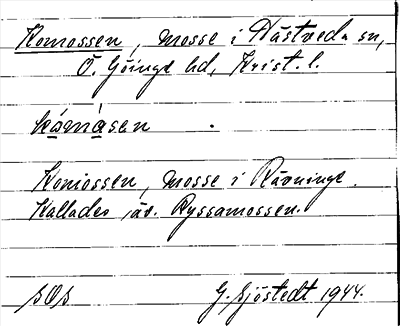 Komossen, mosse i Hästveda sn,
Ö. Göinge hd, Krist. l.
kómåsen
Komossen, mosse i Rävninge.
Kallades äv. Ryssamossen.
SOS G. Sjöstedt 1944.